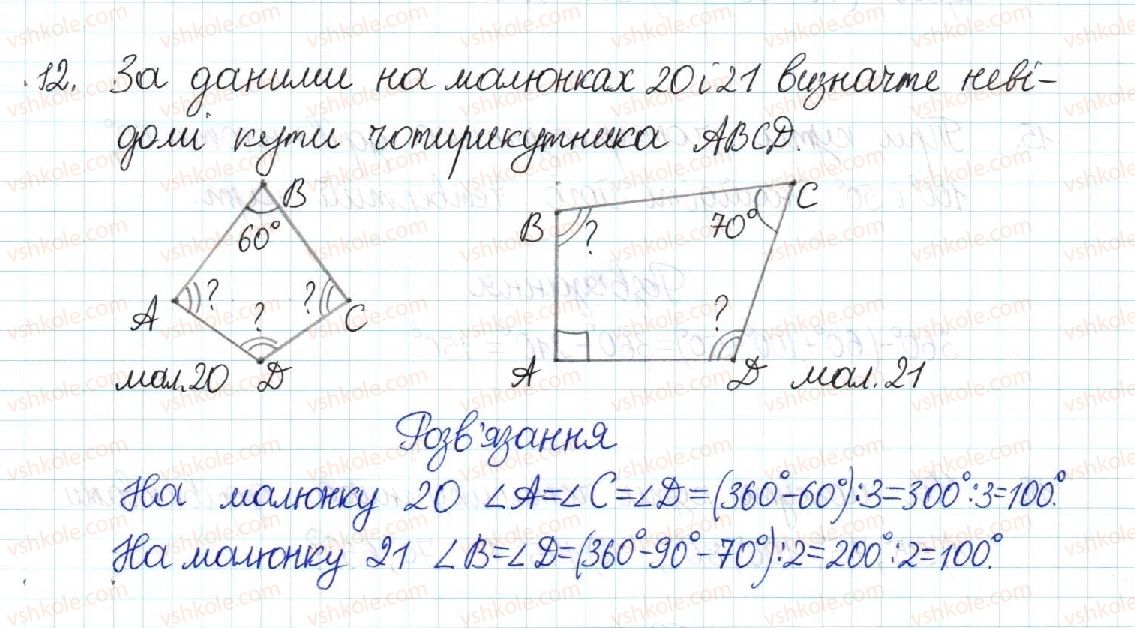 12. За даними на малюнках 20 і 21 визначте неві-
домі кути чотирикутника ABCD.
B
60°
A ? ? ? C
мал. 20 D
B ? 70° C
?
A D мал. 21
Розв'язання
На малюнку 20 ∠A=∠C=∠D=(360°-60°):3=300°:3=100°.
На малюнку 21 ∠B=∠D=(360°-90°-70°):2=200°:2=100°.